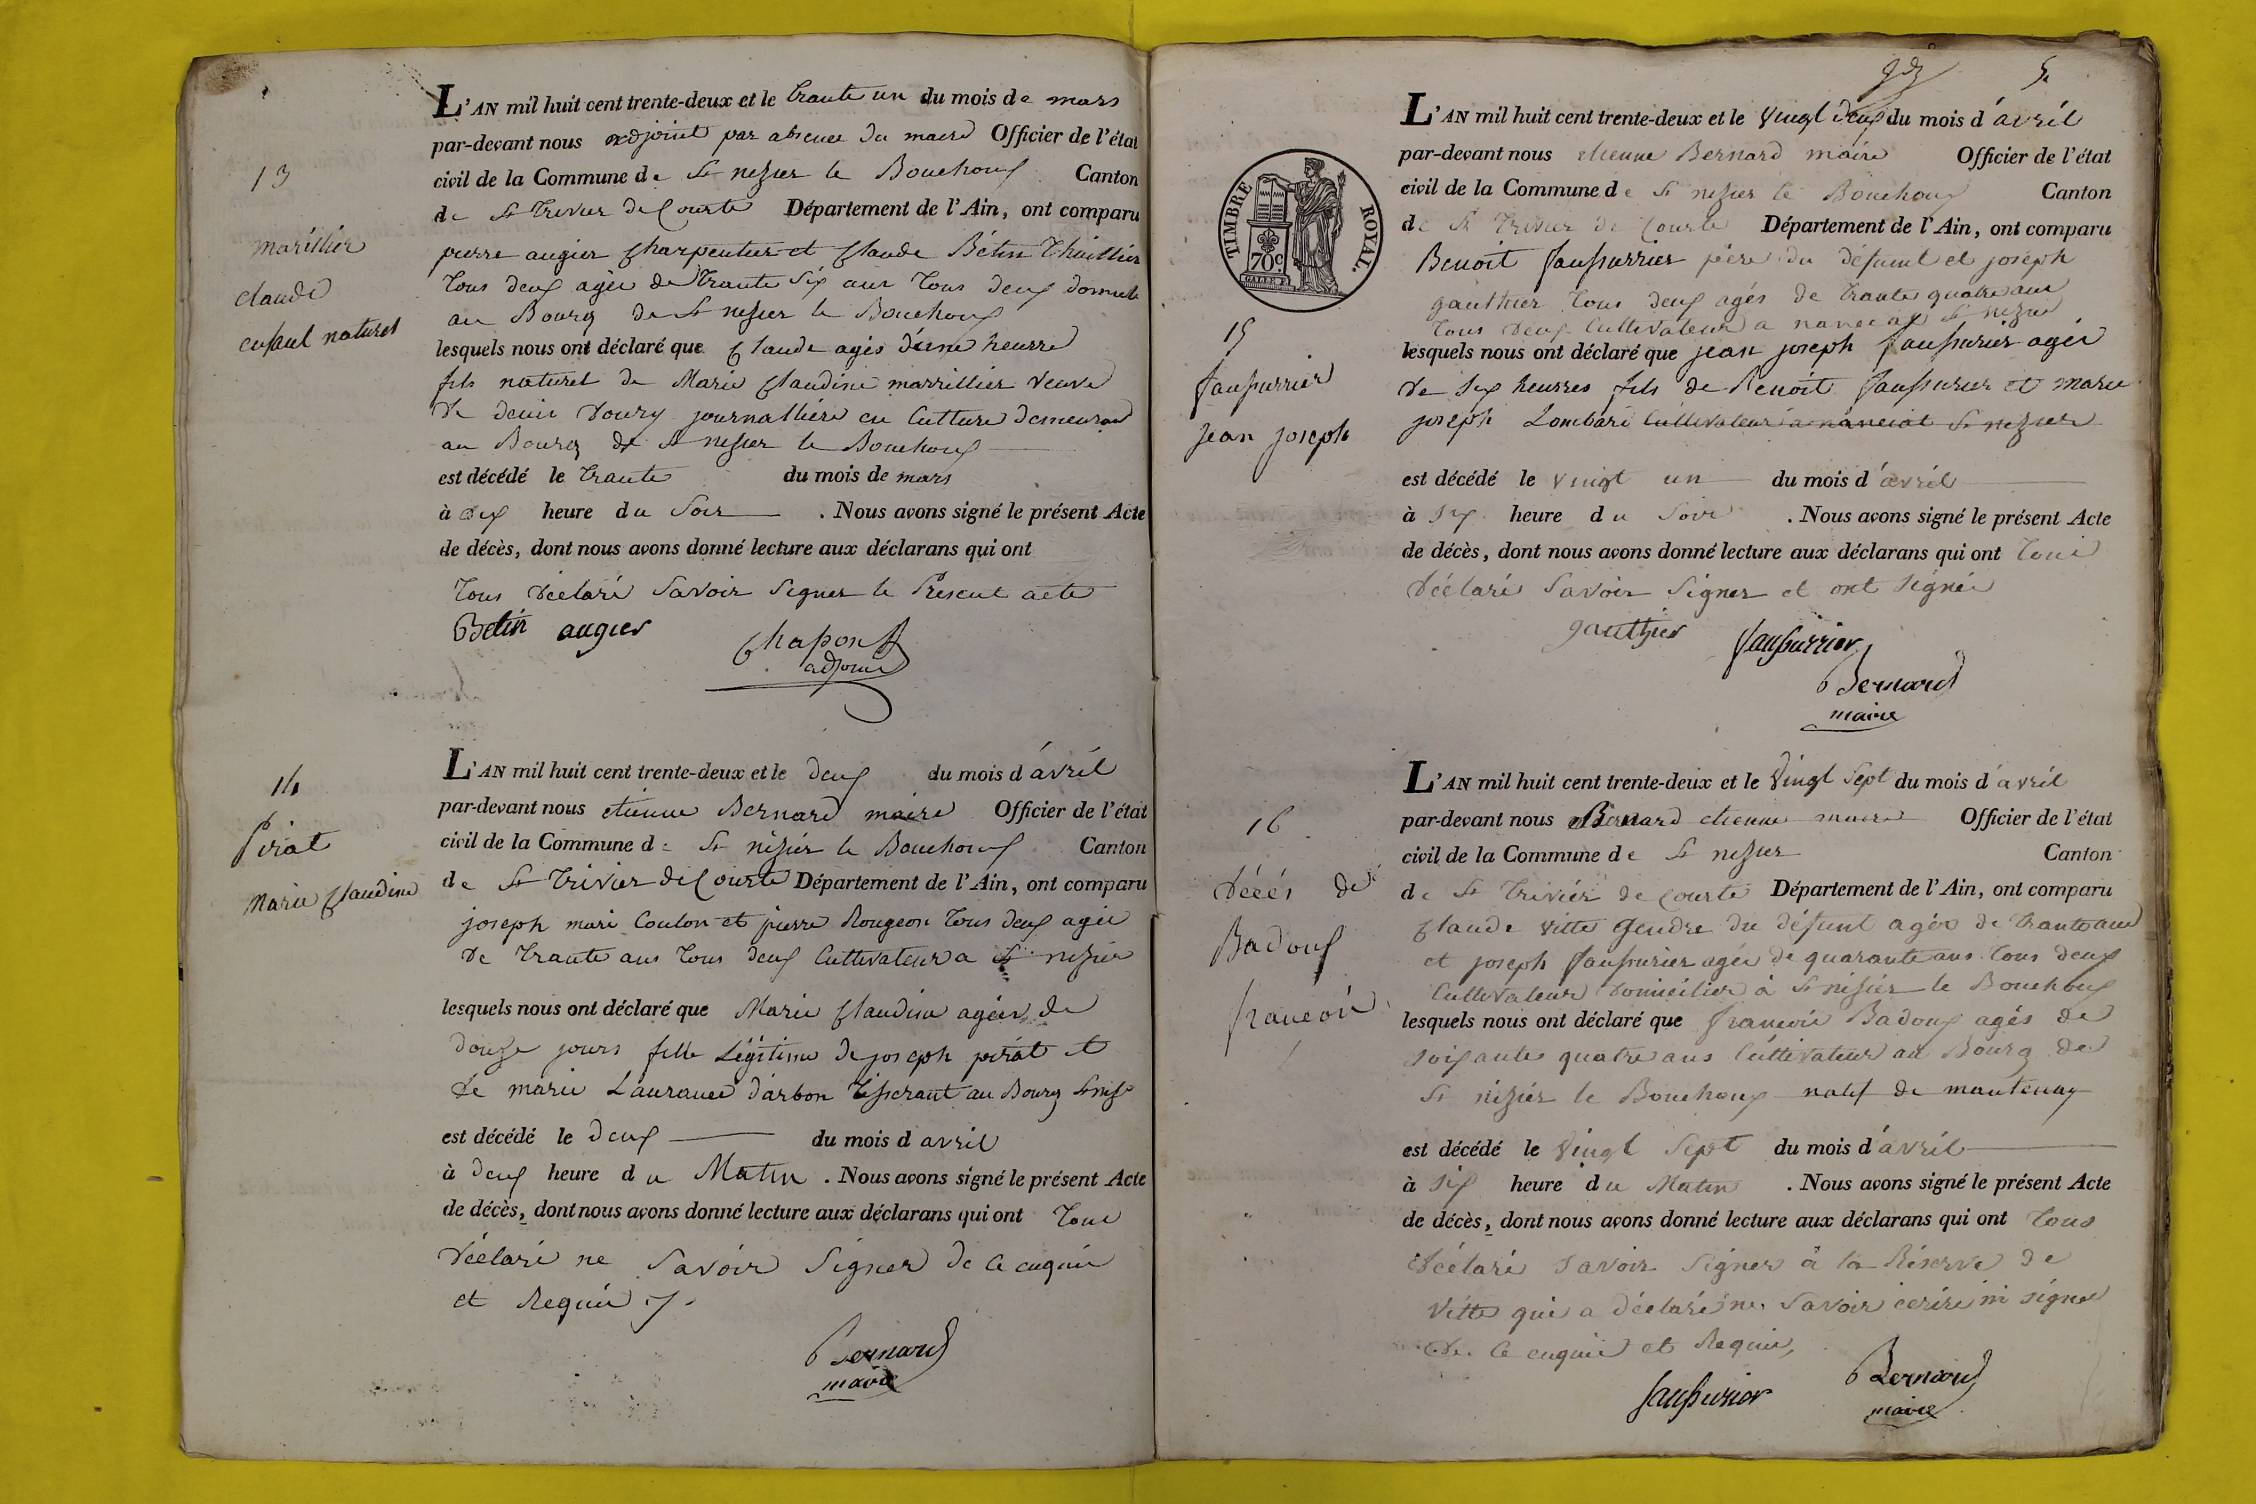 13
marillier
claude
enfant naturel
L'AN mil huit cent trente-deux et le trante un du mois de mars
par-devant nous adjoint par absence du maire Officier de l'état
civil de la Commune de St nizier le Bouchoux Canton
de St Trivier de Courte Département de l'Ain, ont comparu
pierre augier charpentier et Claude Bétin Thuillier
tous deux agée de trante six ans tous deux domicile
au Bourg de St nizier le Bouchoux
lesquels nous ont déclaré que Claude agés d'une heurre
fils naturel de Marie Claudine marrillier veuve
de denis Doury journalliére en Culture demeurant
au Bourg de St nizier le Bouchoux
est décédé le trante du mois de mars
à dix heure du Soir . Nous avons signé le présent Acte
de décès, dont nous avons donné lecture aux déclarans qui ont
tous déclaré Savoir Signer le Présent acte
Betin augier
Chapon
adjoint
14
Pirat
Marie Claudine
L'AN mil huit cent trente-deux et le deux du mois d'avril
par-devant nous etienne Bernard maire Officier de l'état
civil de la Commune de St nizier le Bouchoux Canton
de St Trivier de Courte Département de l'Ain, ont comparu
joseph mari Coulon et pierre Rougeon tous deux agée
de trante ans tous deux Cultivateur a St nizier
lesquels nous ont déclaré que Marie Claudine agée de
douze jours fille Légitime de joseph pirat et
de marie Laurance d'arbon tisserant au Bourg St niz
est décédé le deux du mois d avril
à deux heure du Matin . Nous avons signé le présent Acte
de décès, dont nous avons donné lecture aux déclarans qui ont tous
déclaré ne Savoir Signer de ce enquis
et Requis
Bernard
maire
5.
TIMBRE ROYAL.
70c
15
faussurrier
jean joseph
L'AN mil huit cent trente-deux et le vingt deux du mois d'avril
par-devant nous etienne Bernard maire Officier de l'état
civil de la Commune de St nizier le Bouchoux Canton
de St Trivier de Courte Département de l'Ain, ont comparu
Benoit faussurrier père du défunt et joseph
gauthier tous deux agés de trante quatre ans
tous deux Cultivateur a nanciat St nizier
lesquels nous ont déclaré que jean joseph faussurier agée
de six heurres fils de Benoit faussurier et marie
joseph Lombard Cultivateur a nanciat St nizier
est décédé le vingt un du mois d'avril
à six heure du Soir . Nous avons signé le présent Acte
de décès, dont nous avons donné lecture aux déclarans qui ont tous
déclaré Savoir Signer et ont signée
gauthier faussurrier
Bernard
maire
16
décés de
Badoux
francois
L'AN mil huit cent trente-deux et le vingt sept du mois d'avril
par-devant nous Bernard etienne maire Officier de l'état
civil de la Commune de St nizier Canton
de St Trivier de Courte Département de l'Ain, ont comparu
Claude vitte gendre du défunt agée de trante ans
et joseph faussurier agée de quarante ans tous deux
Cultivateur domicilier à St nizier le Bouchoux
lesquels nous ont déclaré que francois Badoux agés de
soixante quatre ans Cultivateur au Bourg de
St nizier le Bouchoux natif de mantenay
est décédé le vingt sept du mois d'avril
à six heure du Matin . Nous avons signé le présent Acte
de décès, dont nous avons donné lecture aux déclarans qui ont tous
déclaré savoir signer à la Réserve de
vitte qui a déclaré ne savoir ecrire ni signer
de ce enquis et Requis,
faussurier Bernard
maire